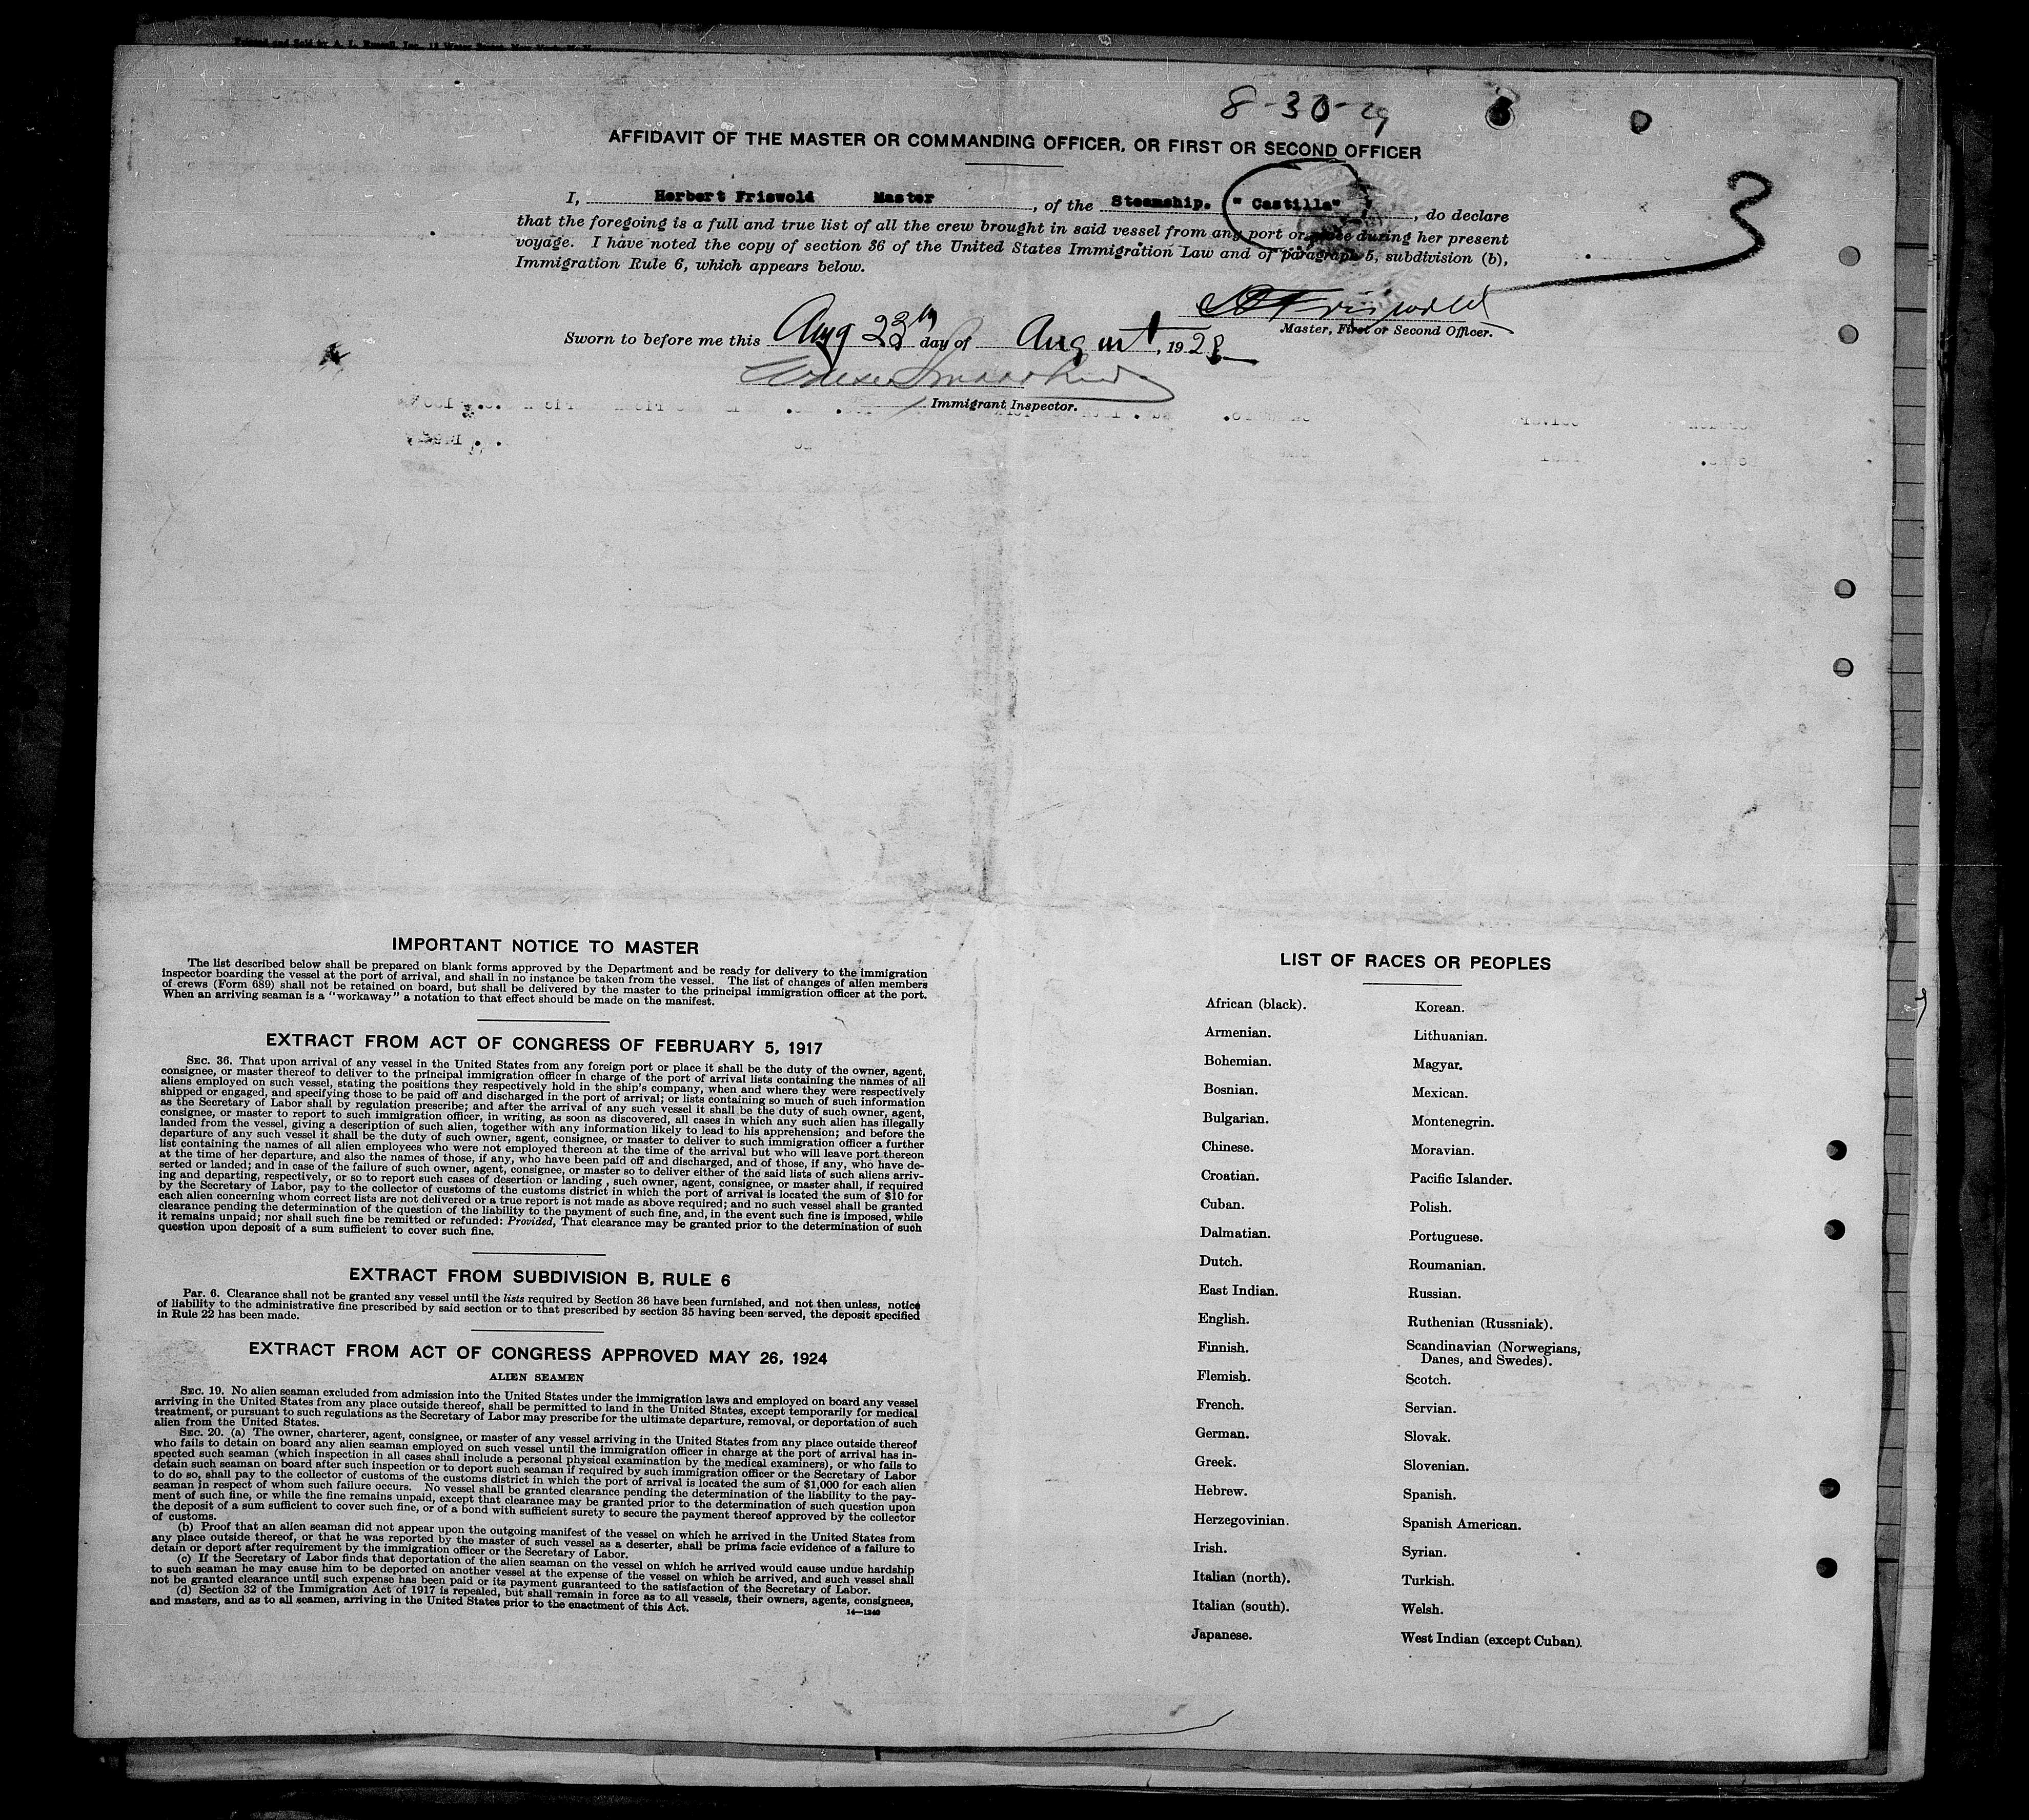 8-30-29
AFFIDAVIT OF THE MASTER OR COMMANDING OFFICER, OR FIRST OR SECOND OFFICER
I, Herbert Friswold Master, of the Steamship. "Castilla", do declare
that the foregoing is a full and true list of all the crew brought in said vessel from any port or place during her present
voyage. I have noted the copy of section 36 of the United States Immigration Law and of paragraph 5, subdivision (b),
Immigration Rule 6, which appears below.
3
Master, First or Second Officer.
Sworn to before me this Aug day of August, 192
Immigrant Inspector.
IMPORTANT NOTICE TO MASTER
The list described below shall be prepared on blank forms approved by the Department and be ready for delivery to the immigration
inspector boarding the vessel at the port of arrival, and shall in no instance be taken from the vessel. The list of changes of alien members
of crews (Form 689) shall not be retained on board, but shall be delivered by the master to the principal immigration officer at the port.
When an arriving seaman is a "workaway" a notation to that effect should be made on the manifest.
EXTRACT FROM ACT OF CONGRESS OF FEBRUARY 5, 1917
SEC. 36. That upon arrival of any vessel in the United States from any foreign port or place it shall be the duty of the owner, agent,
consignee, or master thereof to deliver to the principal immigration officer in charge of the port of arrival lists containing the names of all
aliens employed on such vessel, stating the positions they respectively hold in the ship's company, when and where they were respectively
shipped or engaged, and specifying those to be paid off and discharged in the port of arrival; or lists containing so much of such information
as the Secretary of Labor shall by regulation prescribe; and after the arrival of any such vessel it shall be the duty of such owner, agent,
consignee, or master to report to such immigration officer, in writing, as soon as discovered, all cases in which any such alien has illegally
landed from the vessel, giving a description of such alien, together with any information likely to lead to his apprehension; and before the
departure of any such vessel it shall be the duty of such owner, agent, consignee, or master to deliver to such immigration officer a further
list containing the names of all alien employees who were not employed thereon at the time of the arrival but who will leave port thereon
at the time of her departure, and also the names of those, if any, who have been paid off and discharged, and of those, if any, who have de-
serted or landed; and in case of the failure of such owner, agent, consignee, or master so to deliver either of the said lists of such aliens arriv-
ing and departing, respectively, or so to report such cases of desertion or landing , such owner, agent, consignee, or master shall, if required
by the Secretary of Labor, pay to the collector of customs of the customs district in which the port of arrival is located the sum of $10 for
each alien concerning whom correct lists are not delivered or a true report is not made as above required; and no such vessel shall be granted
clearance pending the determination of the question of the liability to the payment of such fine, and, in the event such fine is imposed, while
it remains unpaid; nor shall such fine be remitted or refunded: Provided, That clearance may be granted prior to the determination of such
question upon deposit of a sum sufficient to cover such fine.
EXTRACT FROM SUBDIVISION B, RULE 6
Par. 6. Clearance shall not be granted any vessel until the lists required by Section 36 have been furnished, and not then unless, notice
of liability to the administrative fine prescribed by said section or to that prescribed by section 35 having been served, the deposit specified
in Rule 22 has been made.
EXTRACT FROM ACT OF CONGRESS APPROVED MAY 26, 1924
ALIEN SEAMEN
SEC. 19. No alien seaman excluded from admission into the United States under the immigration laws and employed on board any vessel
arriving in the United States from any place outside thereof, shall be permitted to land in the United States, except temporarily for medical
treatment, or pursuant to such regulations as the Secretary of Labor may prescribe for the ultimate departure, removal, or deportation of such
alien from the United States.
SEC. 20. (a) The owner, charterer, agent, consignee, or master of any vessel arriving in the United States from any place outside thereof
who fails to detain on board any alien seaman employed on such vessel until the immigration officer in charge at the port of arrival has in-
spected such seaman (which inspection in all cases shall include a personal physical examination by the medical examiners), or who fails to
detain such seaman on board after such inspection or to deport such seaman if required by such immigration officer or the Secretary of Labor
to do so, shall pay to the collector of customs of the customs district in which the port of arrival is located the sum of $1,000 for each alien
seaman in respect of whom such failure occurs. No vessel shall be granted clearance pending the determination of the liability to the pay-
ment of such fine, or while the fine remains unpaid, except that clearance may be granted prior to the determination of such question upon
the deposit of a sum sufficient to cover such fine, or of a bond with sufficient surety to secure the payment thereof approved by the collector
of customs.
(b) Proof that an alien seaman did not appear upon the outgoing manifest of the vessel on which he arrived in the United States from
any place outside thereof, or that he was reported by the master of such vessel as a deserter, shall be prima facie evidence of a failure to
detain or deport after requirement by the immigration officer or the Secretary of Labor.
(c) If the Secretary of Labor finds that deportation of the alien seaman on the vessel on which he arrived would cause undue hardship
to such seaman he may cause him to be deported on another vessel at the expense of the vessel on which he arrived, and such vessel shall
not be granted clearance until such expense has been paid or its payment guaranteed to the satisfaction of the Secretary of Labor.
(d) Section 32 of the Immigration Act of 1917 is repealed, but shall remain in force as to all vessels, their owners, agents, consignees,
and masters, and as to all seamen, arriving in the United States prior to the enactment of this Act.
14—1240
LIST OF RACES OR PEOPLES
African (black).
Armenian.
Bohemian.
Bosnian.
Bulgarian.
Chinese.
Croatian.
Cuban.
Dalmatian.
Dutch.
East Indian.
English.
Finnish.
Flemish.
French.
German.
Greek.
Hebrew.
Herzegovinian.
Irish.
Italian (north).
Italian (south).
Japanese.
Korean.
Lithuanian.
Magyar.
Mexican.
Montenegrin.
Moravian.
Pacific Islander.
Polish.
Portuguese.
Roumanian.
Russian.
Ruthenian (Russniak).
Scandinavian (Norwegians,
Danes, and Swedes).
Scotch.
Servian.
Slovak.
Slovenian.
Spanish.
Spanish American.
Syrian.
Turkish.
Welsh.
West Indian (except Cuban).